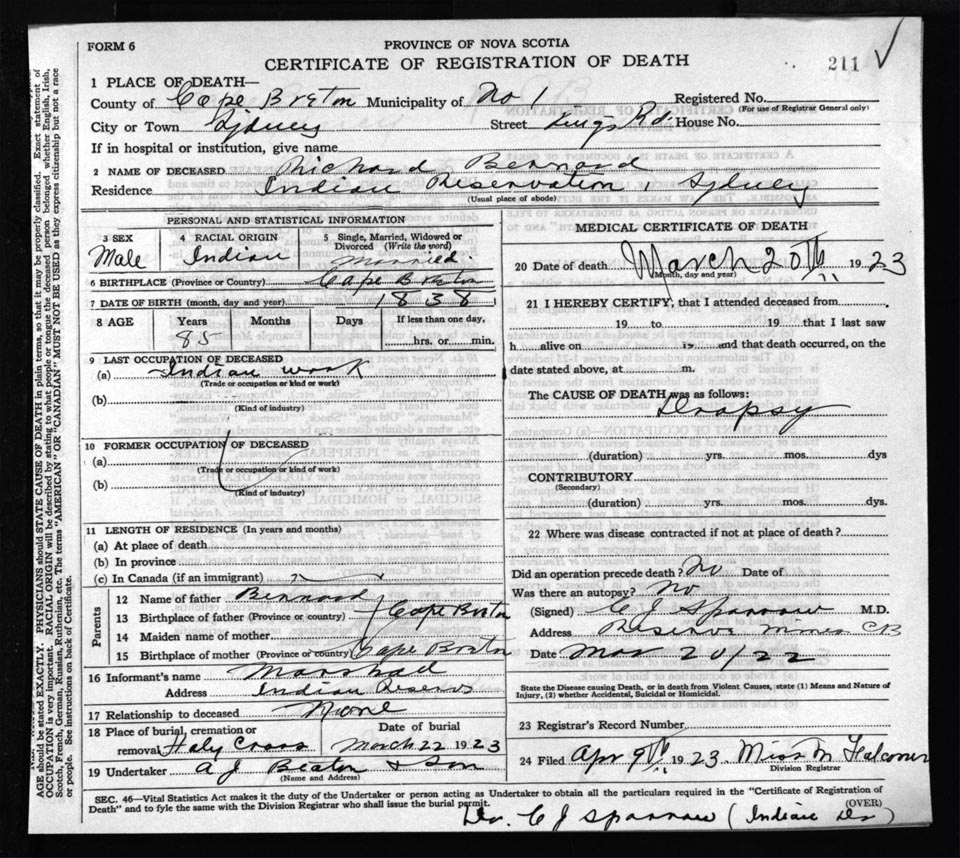 FORM 6
PROVINCE OF NOVA SCOTIA
CERTIFICATE OF REGISTRATION OF DEATH
211 ✓
1 PLACE OF DEATH—
County of Cape Breton Municipality of No 1 Registered No.
(For use of Registrar General only)
City or Town Sydney Street Kings Rd. House No.
If in hospital or institution, give name
2 NAME OF DECEASED Richard Bernard
Residence Indian Reservation, Sydney
(Usual place of abode)
PERSONAL AND STATISTICAL INFORMATION
3 SEX Male
4 RACIAL ORIGIN Indian
5 Single, Married, Widowed or Divorced (Write the word) Married.
6 BIRTHPLACE (Province or Country) Cape Breton
7 DATE OF BIRTH (month, day and year) 1838
8 AGE Years Months Days If less than one day,
85 hrs. or min.
9 LAST OCCUPATION OF DECEASED
(a) Indian work
(Trade or occupation or kind of work)
(b)
(Kind of industry)
10 FORMER OCCUPATION OF DECEASED
(a)
(Trade or occupation or kind of work)
(b)
(Kind of industry)
11 LENGTH OF RESIDENCE (In years and months)
(a) At place of death
(b) In province
(c) In Canada (if an immigrant)
Parents
12 Name of father Bernard
13 Birthplace of father (Province or country) Cape Breton
14 Maiden name of mother
15 Birthplace of mother (Province or country) Cape Breton
16 Informant's name Marshall
Address Indian Reserve
17 Relationship to deceased None
18 Place of burial, cremation or removal Holy Cross
Date of burial
March 22 1923
19 Undertaker A J Beaton & Son
(Name and Address)
MEDICAL CERTIFICATE OF DEATH
20 Date of death March 20th 1923
(Month, day and year)
21 I HEREBY CERTIFY, that I attended deceased from
19 to 19 that I last saw
h alive on 19 and that death occurred, on the
date stated above, at m.
The CAUSE OF DEATH was as follows:
Dropsy
(duration) yrs. mos. dys
CONTRIBUTORY
(Secondary)
(duration) yrs. mos. dys.
22 Where was disease contracted if not at place of death?
Did an operation precede death? No Date of
Was there an autopsy? No
(Signed) C J Sparrow M.D.
Address Reserve Mines CB
Date Mar 20/22
State the Disease causing Death, or in death from Violent Causes, state (1) Means and Nature of
Injury, (2) whether Accidental, Suicidal or Homicidal.
23 Registrar's Record Number
24 Filed Apr 9th 1923 Miss M Falconer
Division Registrar
SEC. 46—Vital Statistics Act makes it the duty of the Undertaker or person acting as Undertaker to obtain all the particulars required in the "Certificate of Registration of
Death" and to fyle the same with the Division Registrar who shall issue the burial permit. (OVER)
Dr. C J Sparrow (Indian Dr)
AGE should be stated EXACTLY. PHYSICIANS should STATE CAUSE OF DEATH in plain terms, so that it may be properly classified. Exact statement of
OCCUPATION is very important. RACIAL ORIGIN will be described by stating to what people or tongue the deceased person belonged whether English, Irish,
Scotch, French, German, Russian, Ruthenian, etc. The terms "AMERICAN" OR "CANADIAN" MUST NOT BE USED as they express citizenship but not a race
or people. See instructions on back of Certificate.